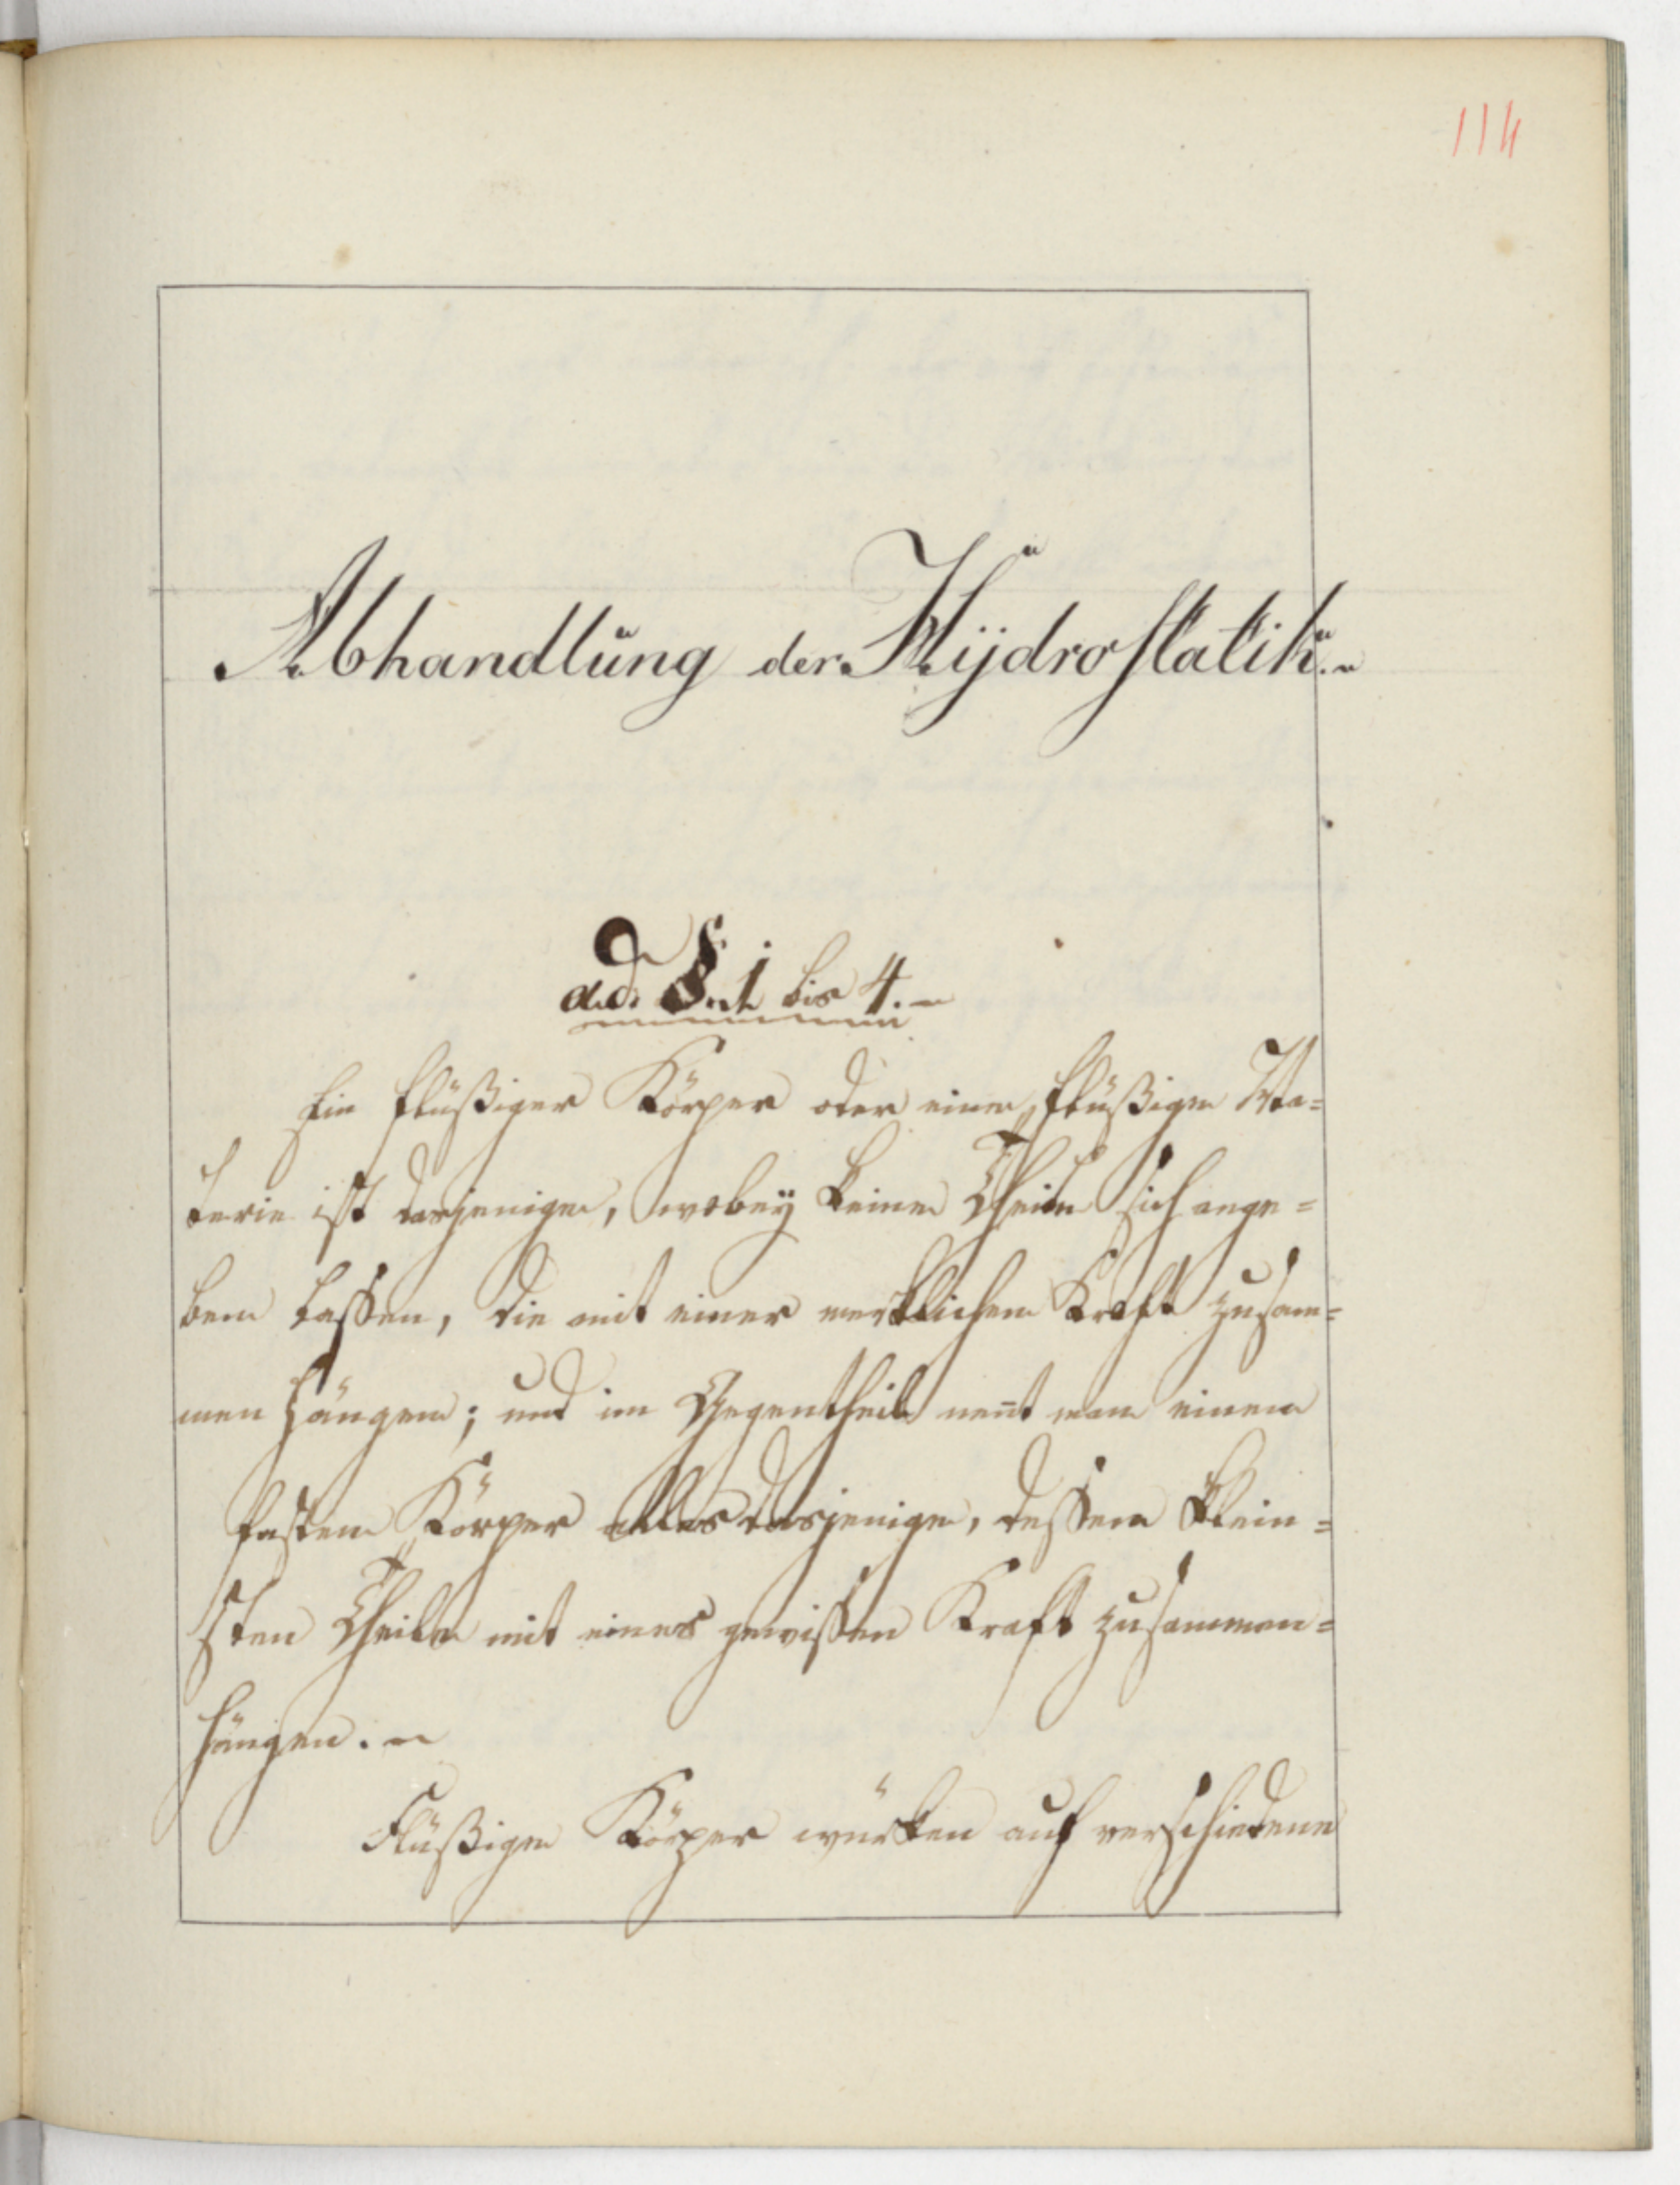 114
Abhandlung der Hÿdrostatik.
ad §. 1 bis 4.
Ein flüßiger Körper oder eine flüßige Ma=
terie ist dasjenige, wobeÿ keine Theile sich ange=
ben laßen, die mit einer merklichen Kraft zusam=
men hängen; und im Gegentheil nen̄t man einen
festen Körper alles dasjenige, deßen klein=
sten Theile mit einer gewißen Kraft zusammen=
hängen.
Flüßige Körper würken auf verschiedene